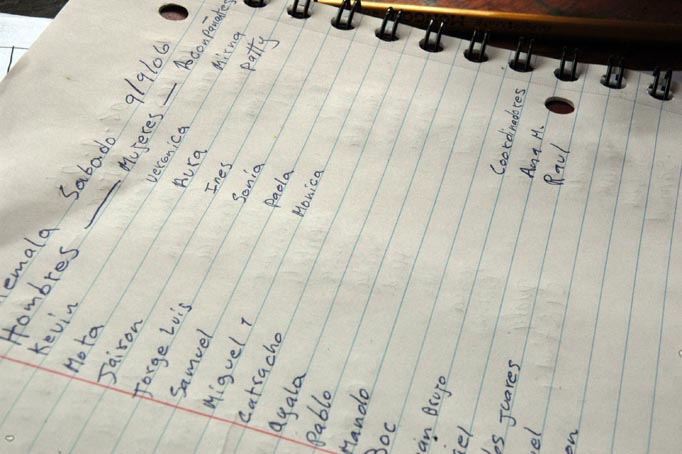 temala Sabado 9/9/06
Hombres — Mujeres — Acompañantes
Kevin Veronica Mirna
Mota Aura Patty
Jairon Ines
Jorge Luis Sonia
Samuel Paola
Miguel T Monica
Catracho
Ayala
Pablo
Mando Coordinadores
Boc Ana M.
án Brujo Raul
iel
és Juares
el
on